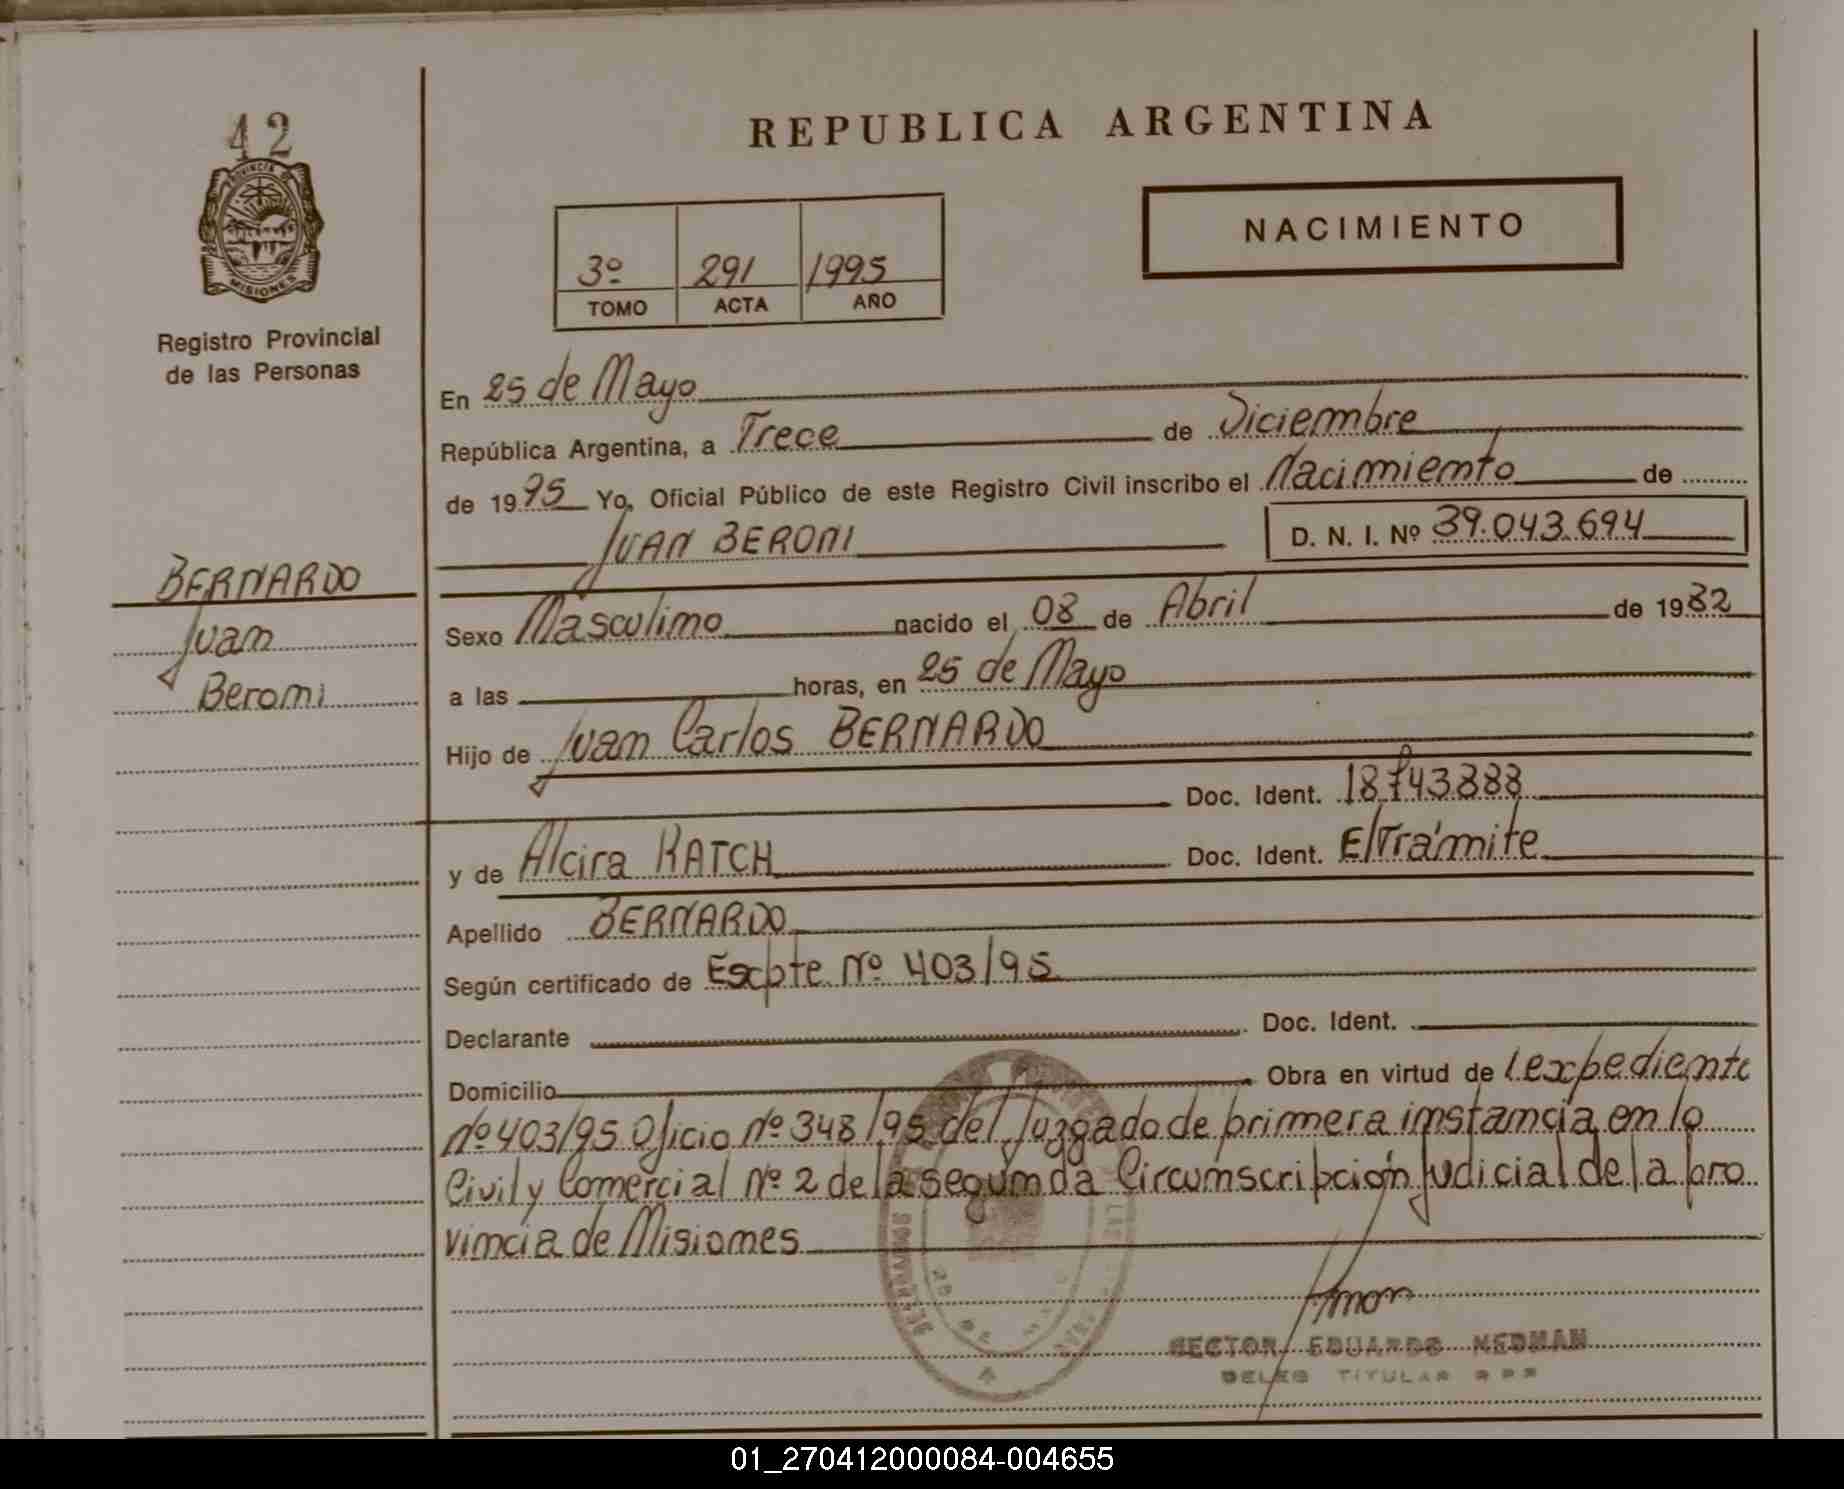 42
PROVINCIA DE
MISIONES
Registro Provincial
de las Personas
BERNARDO
Juan
Beroni
REPUBLICA ARGENTINA
NACIMIENTO
3º 291 1995
TOMO ACTA AÑO
En 25 de Mayo
República Argentina, a Trece de Diciembre
de 1995 Yo, Oficial Público de este Registro Civil inscribo el Nacimiento de
JUAN BERONI D. N. I. Nº 39.043.694
Sexo Masculino nacido el 08 de Abril de 1982
a las horas, en 25 de Mayo
Hijo de Juan Carlos BERNARDO
Doc. Ident. 18.743.888
y de Alcira KATCH Doc. Ident. E/Trámite
Apellido BERNARDO
Según certificado de Escpte Nº 403/95
Declarante Doc. Ident.
Domicilio Obra en virtud de l expediente
Nº 403/95 Oficio Nº 348/95 del Juzgado de primera instancia en lo
Civil y Comercial Nº 2 de la segunda Circunscripción Judicial de la pro
vincia de Misiones
HECTOR EDUARDO NEDMAN
DELEG TITULAR RPP
01_270412000084-004655